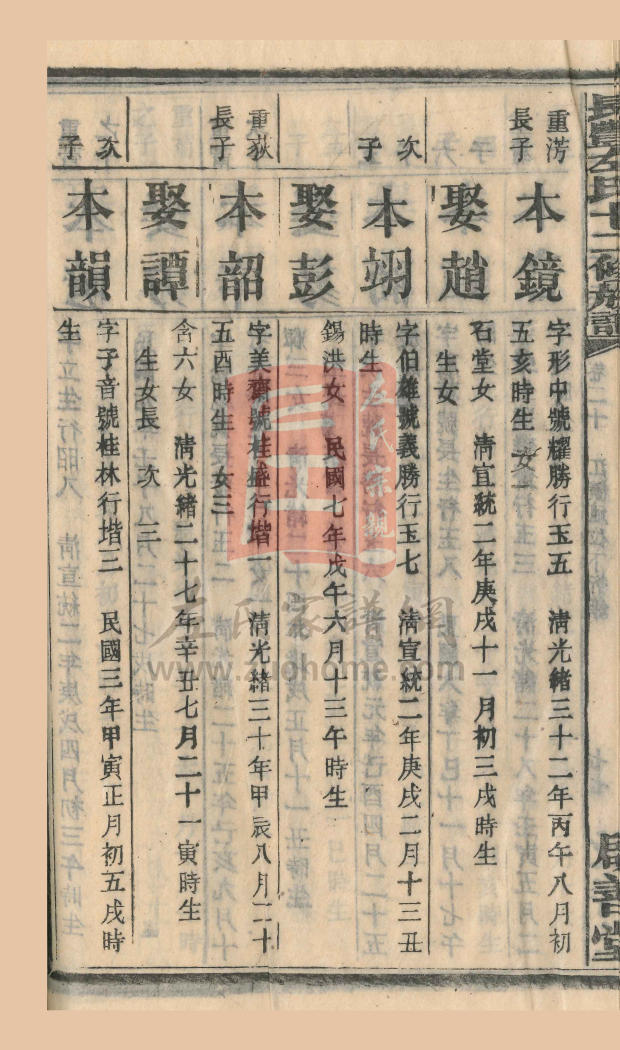 長豐左氏十二修族譜
卷二十
善堂
重澇
長子
本鏡
字形中號耀勝行玉五 清光緒三十二年丙午八月初
五亥時生 女一
娶趙
石堂女 清宣統二年庚戌十一月初三戌時生
生女
次
子
本翊
字伯雄號義勝行玉七 清宣統二年庚戌二月十三丑
時生
娶彭
錫洪女 民國七年戊午六月十三午時生
重荻
長子
本韶
字美齋號桂盛行堦一 清光緒三十年甲辰八月二十
五酉時生 女三
娶譚
含六女 清光緒二十七年辛丑七月二十一寅時生
生女長 次 三
次
子
本韻
字子音號桂林行堦三 民國三年甲寅正月初五戌時
生
左氏家譜網
www.zuohome.com